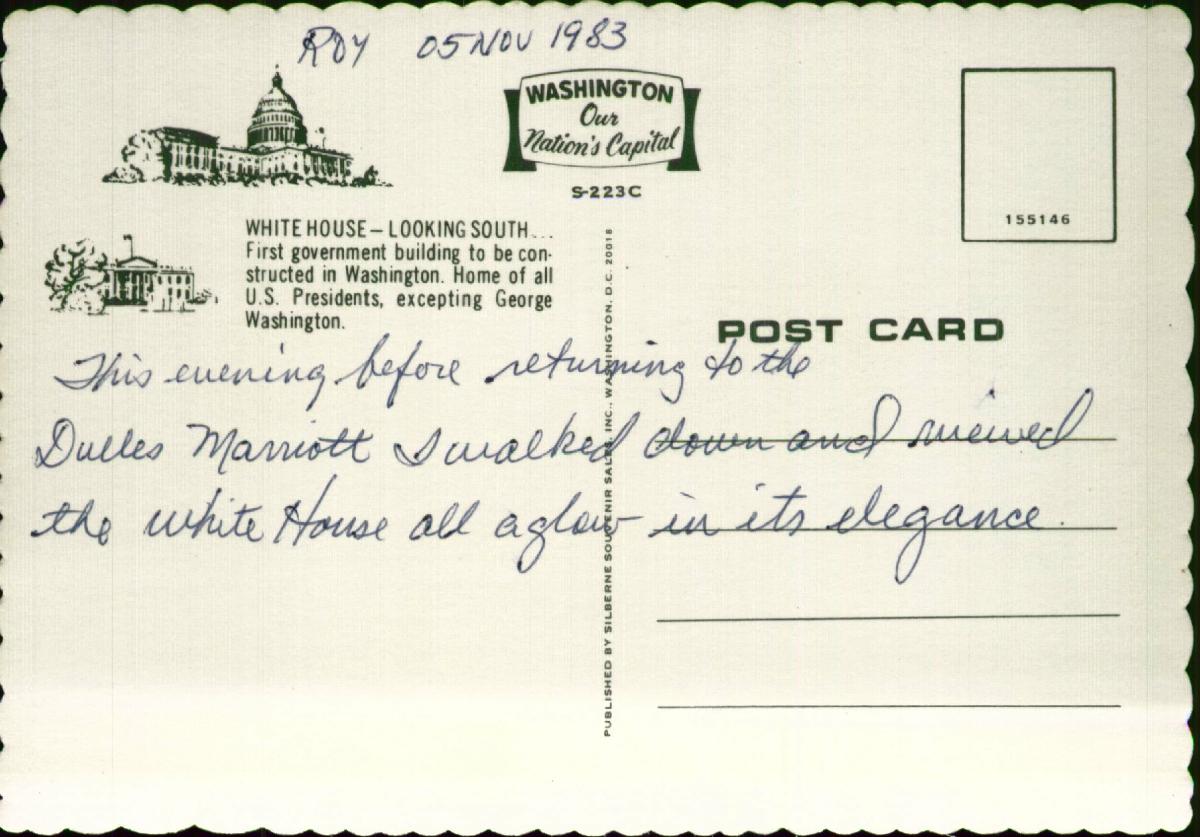 ROY 05 NOV 1983
WASHINGTON
Our
Nation's Capital
S-223C
155146
WHITE HOUSE – LOOKING SOUTH...
First government building to be con-
structed in Washington. Home of all
U.S. Presidents, excepting George
Washington.
POST CARD
This evening before returning to the
Dulles Marriott I walked down and viewed
the white House all aglow in its elegance.
PUBLISHED BY SILBERNE SOUVENIR SALES, INC., WASHINGTON, D.C. 20018